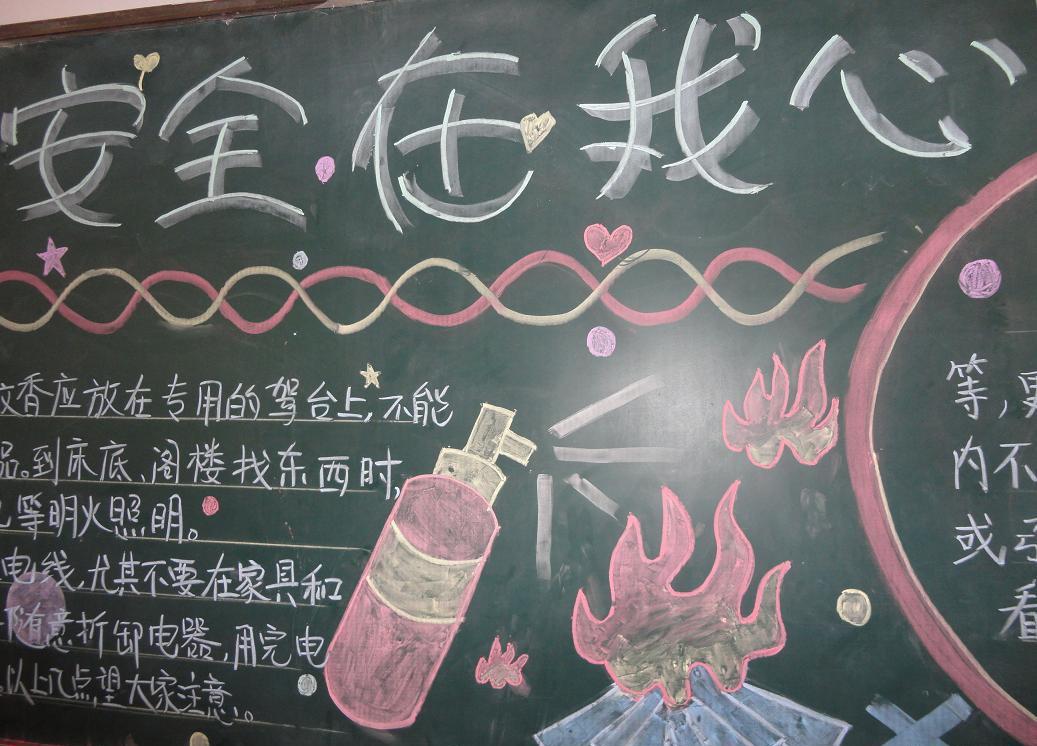 安全在我心
蚊香应放在专用的驾台上,不能
品。到床底、阁楼找东西时,
等明火照明。
电线,尤其不要在家具和
随意拆卸电器,用完电
。以上几点望大家注意。
等,
内不
或引
看